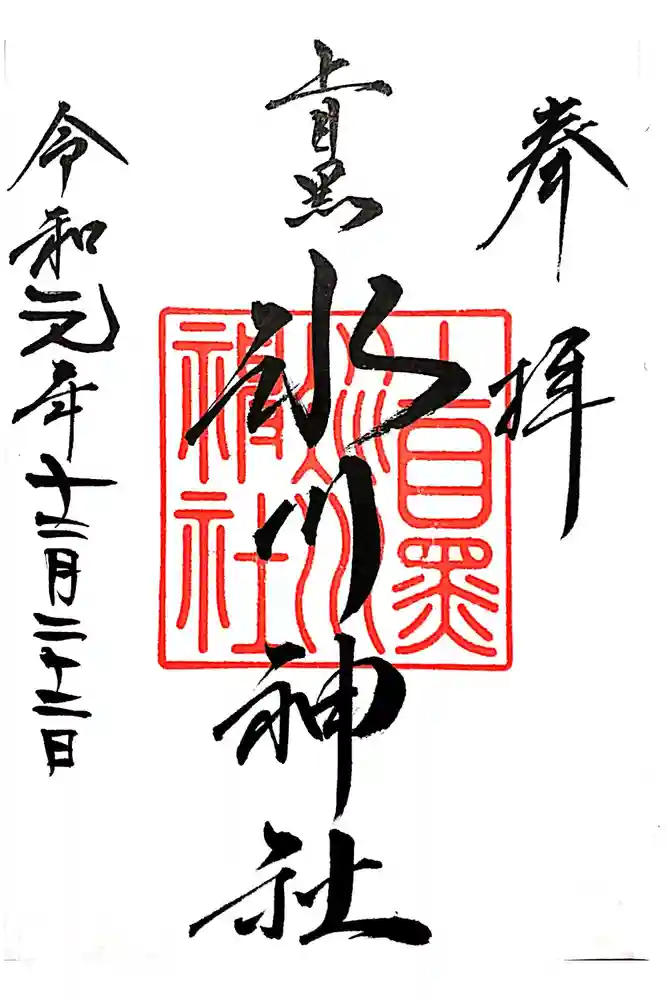 奉拝
上目黒
氷川神社
上目黒
氷川
神社
令和元年十二月二十二日